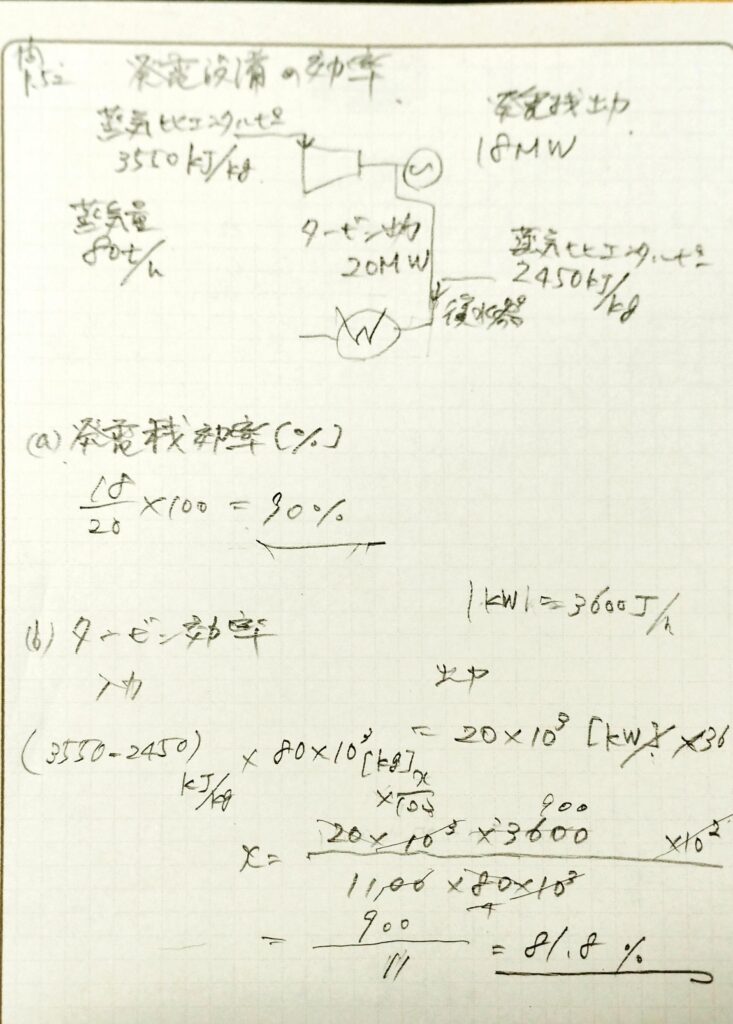 問
P.52 発電設備の効率
蒸気比エンタルピ
3550kJ/kg
発電機出力
18MW
蒸気量
80t/h
タービン出力
20MW
蒸気比エンタルピ
2450kJ/kg
復水器
W
(a) 発電機効率[%]
18/20 ×100 = 90%
1kW = 3600J/h
(b) タービン効率
入力 出力
(3550-2450) kJ/kg × 80×10³[kg] × x/100 = 20×10³ [kW] ×36
x = 20×10³ ×3600 ×10² / 1100 ×80×10³
900
4
= 900/11 = 81.8 %